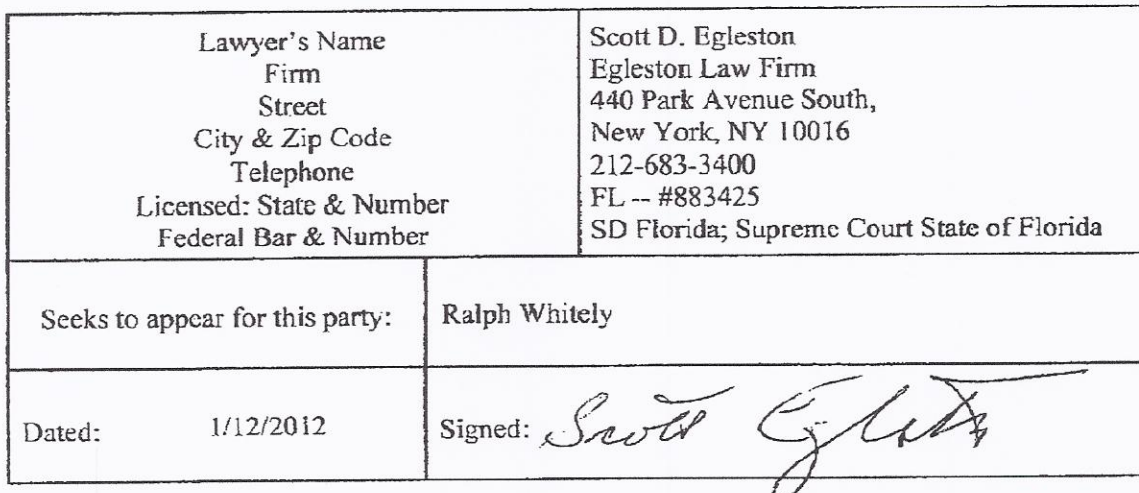 Lawyer's Name
Firm
Street
City & Zip Code
Telephone
Licensed: State & Number
Federal Bar & Number
Scott D. Egleston
Egleston Law Firm
440 Park Avenue South,
New York, NY 10016
212-683-3400
FL -- #883425
SD Florida; Supreme Court State of Florida
Seeks to appear for this party:
Ralph Whitely
Dated: 1/12/2012
Signed: Scott Egleston